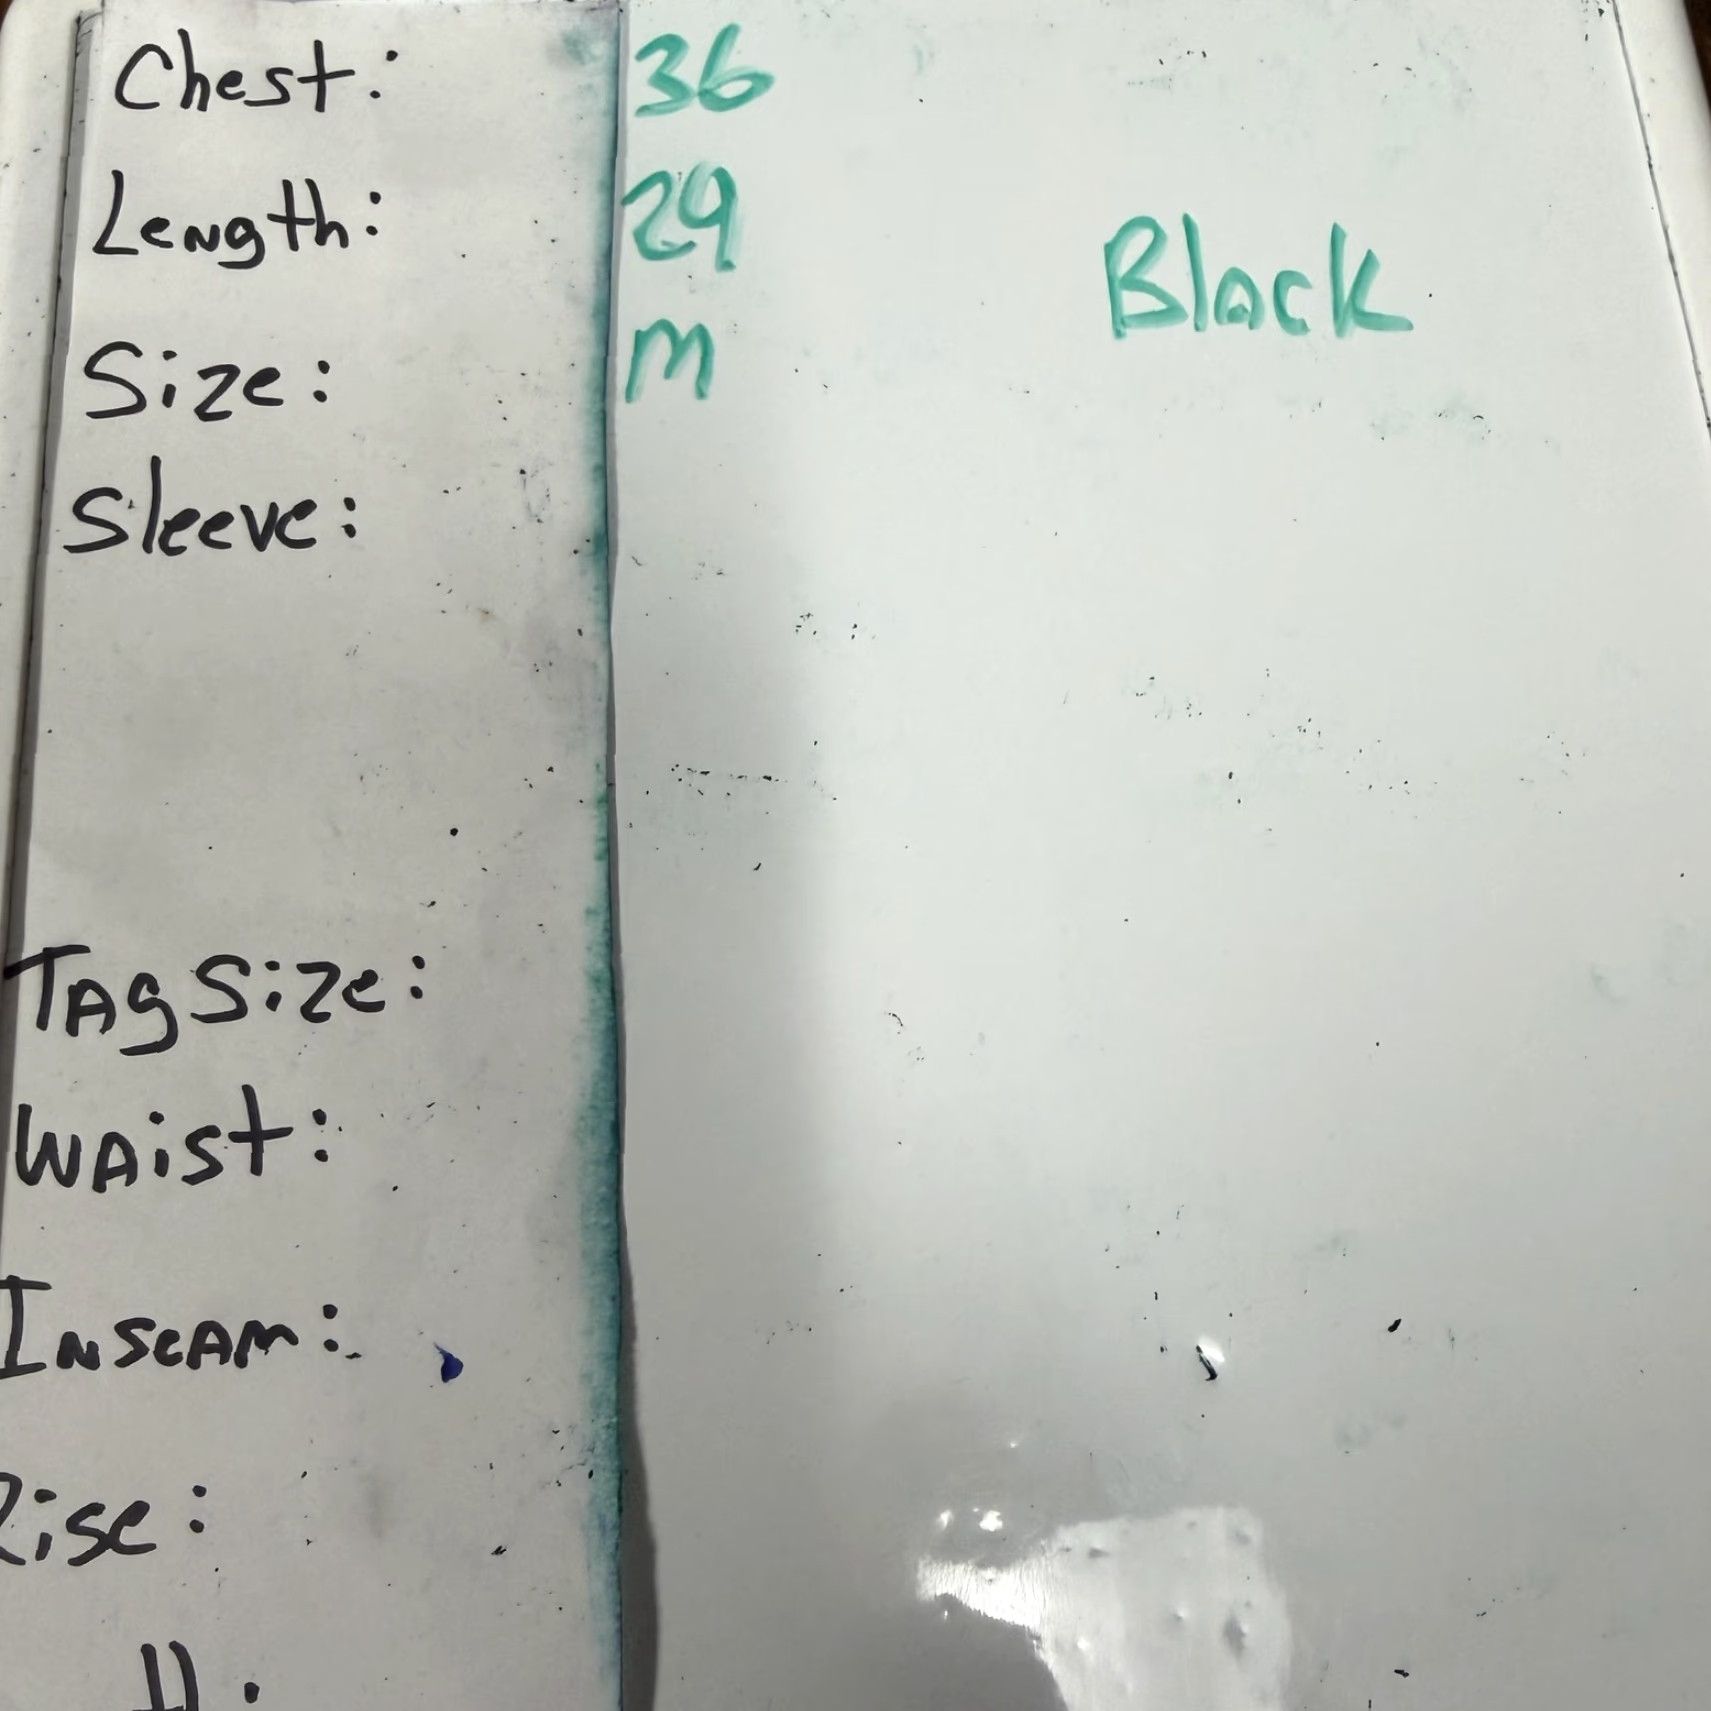 Chest: 36
Length: 29
Black
Size: M
Sleeve:
Tag Size:
Waist:
Inseam:
Rise: